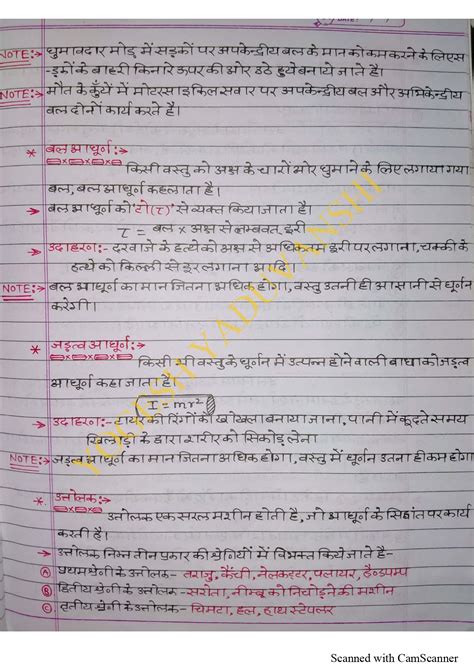 NOTE:→ घुमावदार मोड़ में सड़कों पर अपकेन्द्रीय बल के मान को कम करने के लिए स
-ड़कों के बाहरी किनारे ऊपर की ओर उठे हुये बनाये जाते है।
NOTE:→ मौत के कुँये में मोटरसाइकिल सवार पर अपकेन्द्रीय बल और अभिकेन्द्रीय
बल दोनों कार्य करते है।
* बल आघूर्ण:→
किसी वस्तु को अक्ष के चारों ओर घुमाने के लिए लगाया गया
बल, बल आघूर्ण कहलाता है।
→ बल आघूर्ण को 'टो(τ)' से व्यक्त किया जाता है।
τ = बल x अक्ष से लम्बवत् दूरी
→ उदाहरण:- दरवाजे के हत्थे को अक्ष से अधिकतम दूरी पर लगाना, चक्की के
हत्थे को किल्ली से दूर लगाना आदि।
NOTE:→ बल आघूर्ण का मान जितना अधिक होगा, वस्तु उतनी ही आसानी से घूर्णन
करेगी।
* जड़त्व आघूर्ण:→
किसी भी वस्तु के घूर्णन में उत्पन्न होने वाली बाधा को जड़त्व
आघूर्ण कहा जाता है।
I = mr²
→ उदाहरण:- टायर की रिंगों को खोखला बनाया जाना, पानी में कूदते समय
खिलाड़ी के द्वारा शरीर को सिकोड़ लेना
NOTE:→ जड़त्व आघूर्ण का मान जितना अधिक होगा, वस्तु में घूर्णन उतना ही कम होगा
* उत्तोलक:→
उत्तोलक एक सरल मशीन होती है, जो आघूर्ण के सिद्धांत पर कार्य
करती है।
→ उत्तोलक निम्न तीन प्रकार की श्रेणियों में विभक्त किये जाते है-
Ⓐ प्रथम श्रेणी के उत्तोलक - तराजू, कैंची, नेलकटर, प्लायर, हैन्डपम्प
Ⓑ द्वितीय श्रेणी के उत्तोलक - सरोता, नीम्बू को निचोड़ने की मशीन
Ⓒ तृतीय श्रेणी के उत्तोलक - चिमटा, हल, हाथ स्टेपलर
YOGESH YADUWANSHI
Scanned with CamScanner